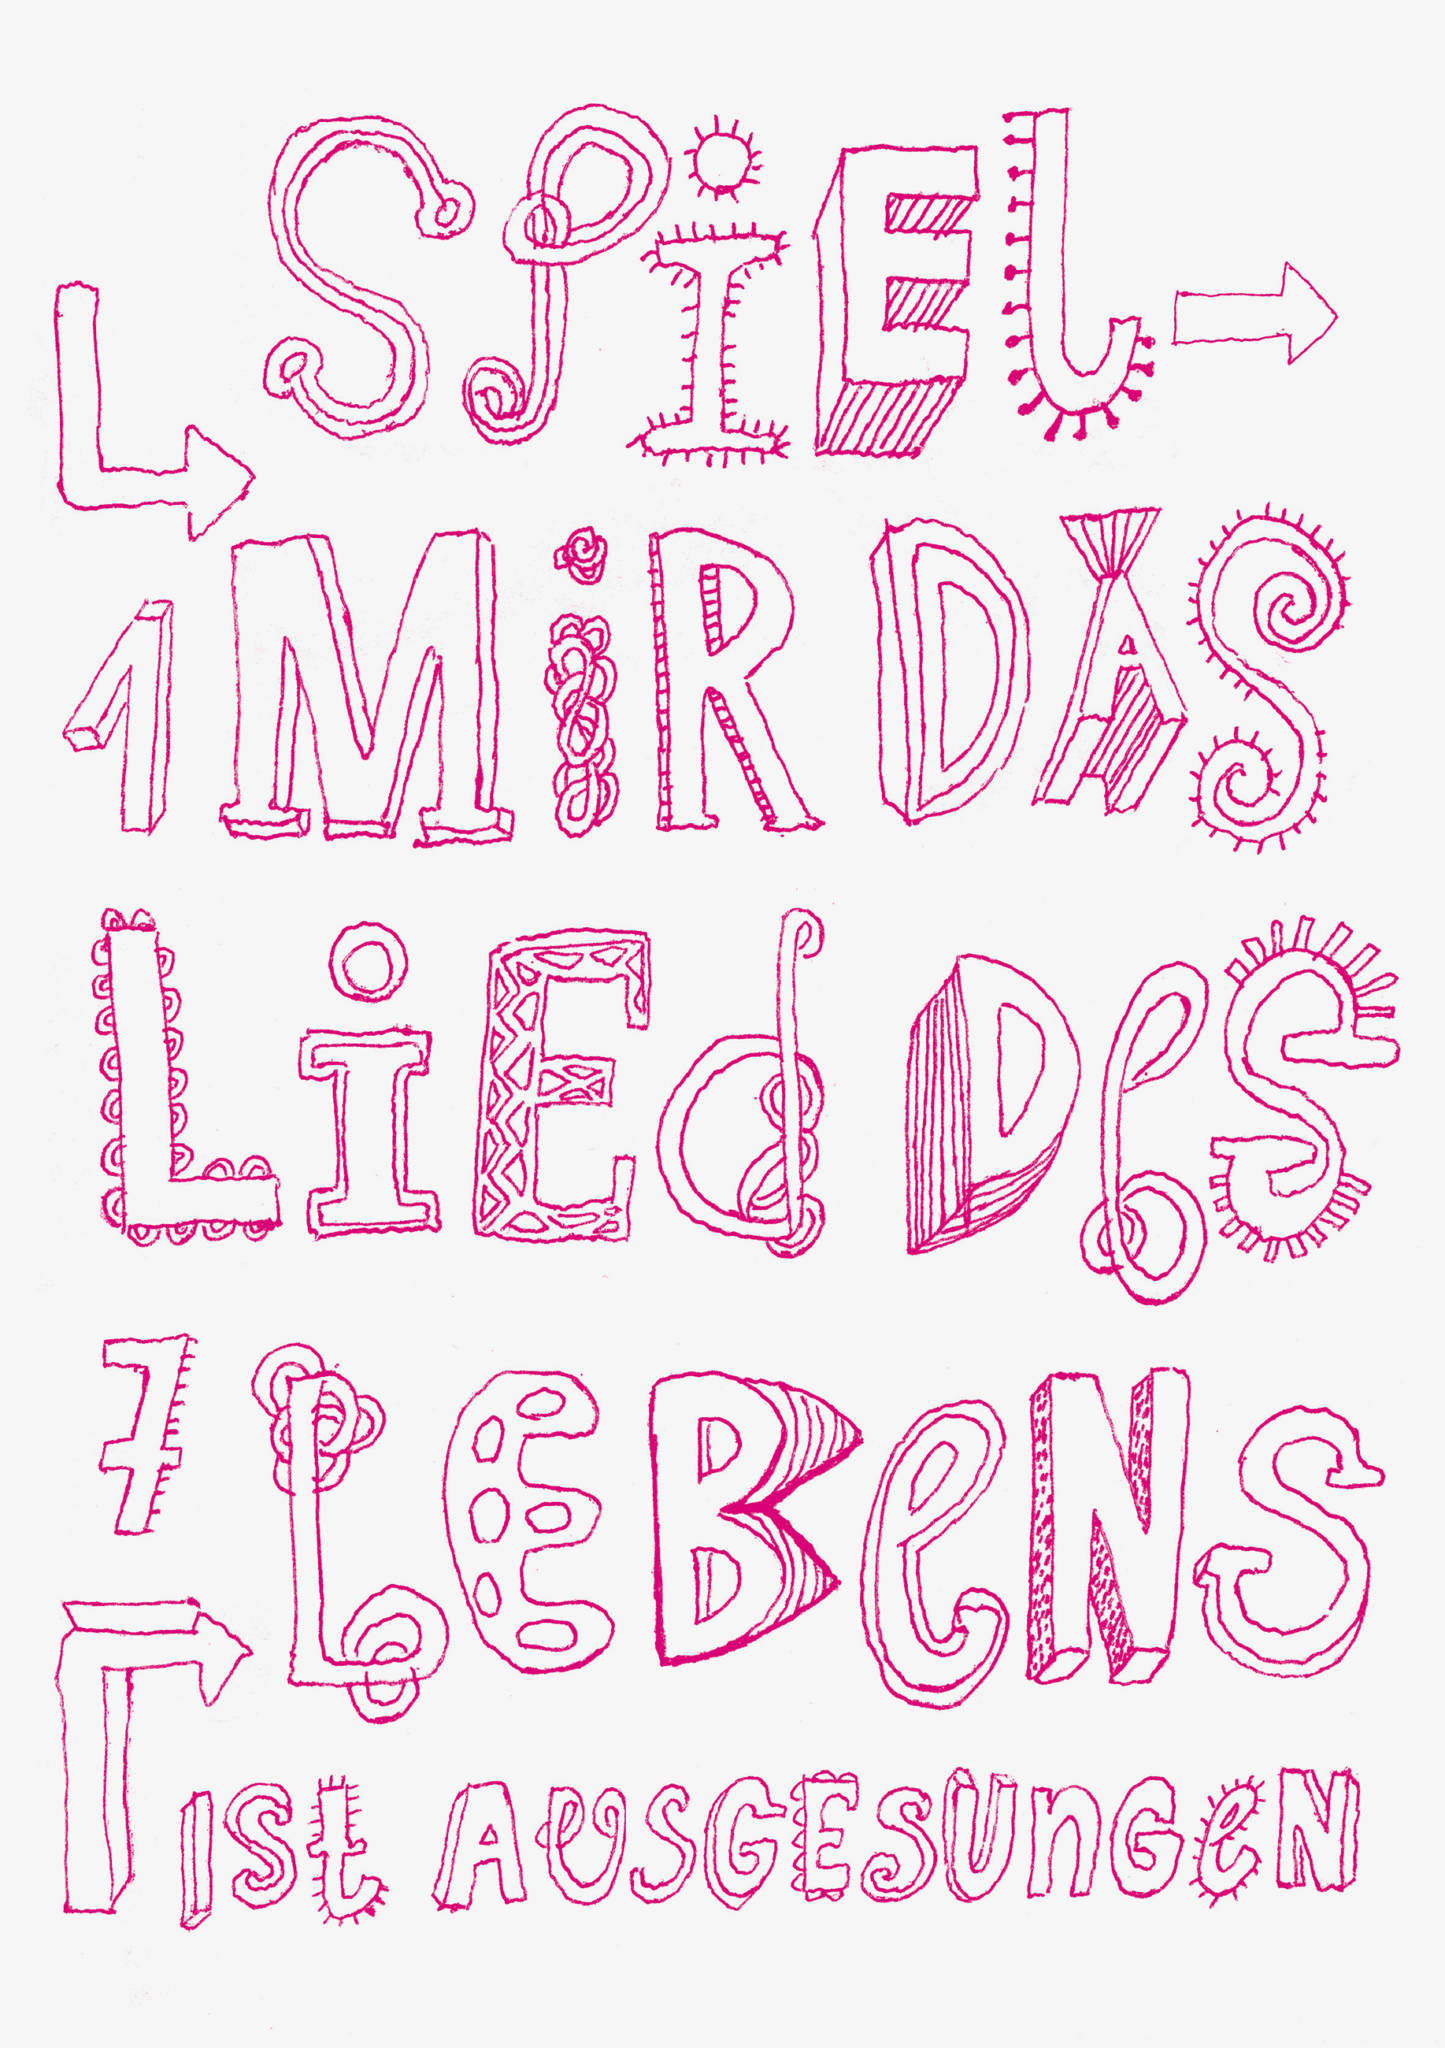 SPiEL
1 MiR DAS
LiEd DES
7 LEBENS
IST AUSGESUNGEN